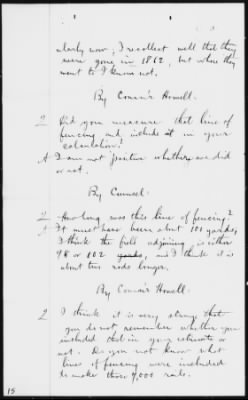 ularly now, I recollect well that they
were gone in 1862, but where they
went to I know not.
By Comm'r Howell.
Q Did you measure that line of
fencing and include it in your
calculation?
A I am not positive whether we did
or not.
By Counsel.
Q How long was this line of fencing?
A It must have been about 101 yards,
I think the full adjoining is either
98 or 102 yards, and I think it is
about two rods longer.
By Comm'r Howell.
Q I think it is very strange that
you do not remember whether you
included that in your estimate or
not. Do you not know what
lines of fencing were included
to make those 7,000 rails.
15